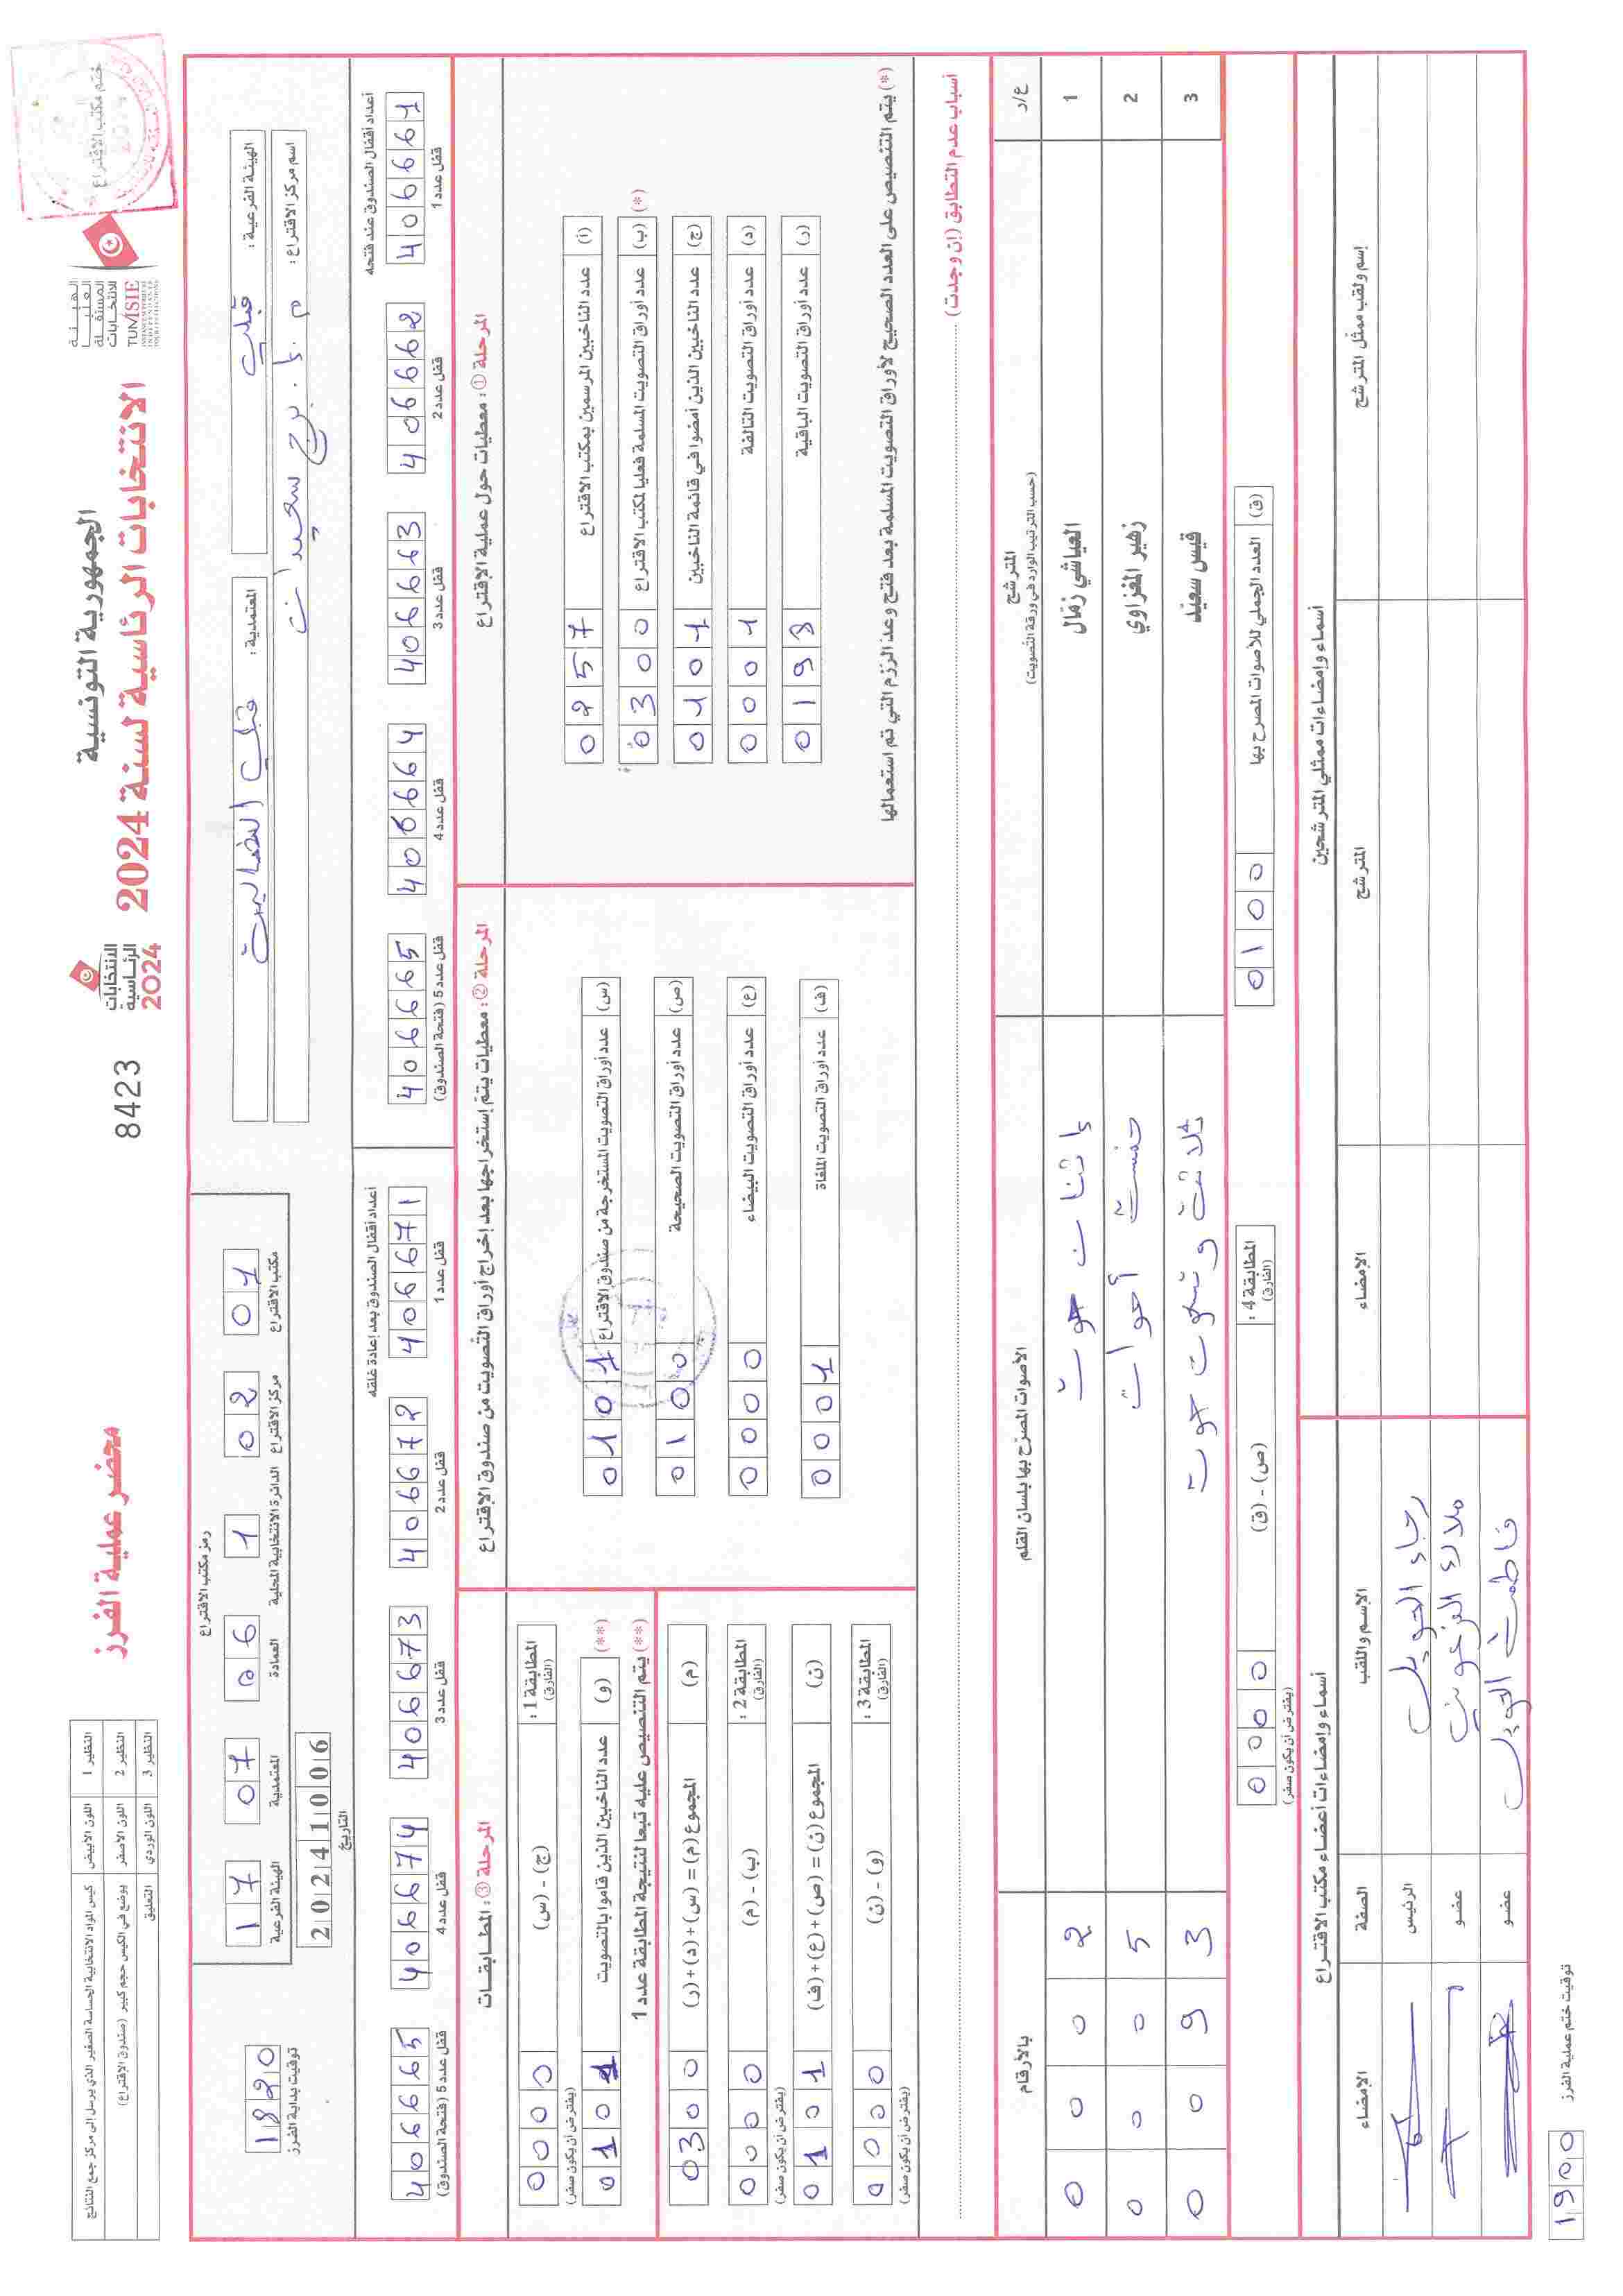 الجمهورية التونسية
الانتخابات الرئاسية لسنة 2024
محضر عملية الفرز
8423
الهيئة العليا المستقلة للانتخابات
TUNISIE
الانتخابات الرئاسية 2024
ختم مكتب الاقتراع
النظير 1 اللون الأبيض كيس المواد الانتخابية الحساسة الصغير الذي يرسل إلى مركز جمع النتائج
النظير 2 اللون الأصفر يوضع في الكيس حجم كبير (صندوق الاقتراع)
النظير 3 اللون الوردي التعليق
الهيئة الفرعية : قبلي
المعتمدية : قبلي الشمالية
اسم مركز الاقتراع : م. إ. برج سعيدان
رمز مكتب الاقتراع
مكتب الاقتراع 01
مركز الاقتراع 02
الدائرة الانتخابية المحلية 1
العمادة 06
المعتمدية 07
الهيئة الفرعية 17
التاريخ 20241006
توقيت بداية الفرز 1820
أعداد أقفال الصندوق عند فتحه
قفل عدد 1 406661
قفل عدد 2 406662
قفل عدد 3 406663
قفل عدد 4 406664
قفل عدد 5 (فتحة الصندوق) 406665
أعداد أقفال الصندوق بعد إعادة غلقه
قفل عدد 1 406671
قفل عدد 2 406672
قفل عدد 3 406673
قفل عدد 4 406674
قفل عدد 5 (فتحة الصندوق) 406665
المرحلة ① : معطيات حول عملية الاقتراع
(أ) عدد الناخبين المرسمين بمكتب الاقتراع 0257
(ب) عدد أوراق التصويت المسلمة فعليا لمكتب الاقتراع 0300 (*)
(ج) عدد الناخبين الذين أمضوا في قائمة الناخبين 0101
(د) عدد أوراق التصويت التالفة 0001
(ر) عدد أوراق التصويت الباقية 0198
(*) يتم التنصيص على العدد الصحيح لأوراق التصويت المسلمة بعد فتح وعد الرزم التي تم استعمالها
المرحلة ② : معطيات يتم إستخراجها بعد إخراج أوراق التصويت من صندوق الاقتراع
(س) عدد أوراق التصويت المستخرجة من صندوق الاقتراع 0101
(ص) عدد أوراق التصويت الصحيحة 0100
(ع) عدد أوراق التصويت البيضاء 0000
(ف) عدد أوراق التصويت الملغاة 0001
المرحلة ③ : المطابقات
المطابقة 1 : (الفارق) (ج) - (س) 0000
(يفترض أن يكون صفر)
(**) (و) عدد الناخبين الذين قاموا بالتصويت 0101
(**) يتم التنصيص عليه تبعا لنتيجة المطابقة عدد 1
(م) المجموع (م) = (س) + (د) + (ر) 0300
المطابقة 2 : (الفارق) (ب) - (م) 0000
(يفترض أن يكون صفر)
(ن) المجموع (ن) = (ص) + (ع) + (ف) 0101
المطابقة 3 : (الفارق) (و) - (ن) 0000
(يفترض أن يكون صفر)
أسباب عدم التطابق (إن وجدت)
ع/د المترشح (حسب الترتيب الوارد في ورقة التصويت) الأصوات المصرح بها بلسان القلم بالأرقام
1 العياشي زمال إثنان صوت 0002
2 زهير المغزاوي خمسة أصوات 0005
3 قيس سعيد ثلاثة وتسعون صوت 0093
(ق) العدد الجملي للأصوات المصرح بها 0100
المطابقة 4 : (الفارق) (ص) - (ق) 0000
(يفترض أن يكون صفر)
أسماء وإمضاءات ممثلي المترشحين
إسم ولقب ممثل المترشح المترشح الإمضاء
أسماء وإمضاءات أعضاء مكتب الاقتراع
الإسم واللقب الصفة الإمضاء
رجاء الرئيس
ملاك عضو
فاطمة عضو
توقيت ختم عملية الفرز 1900